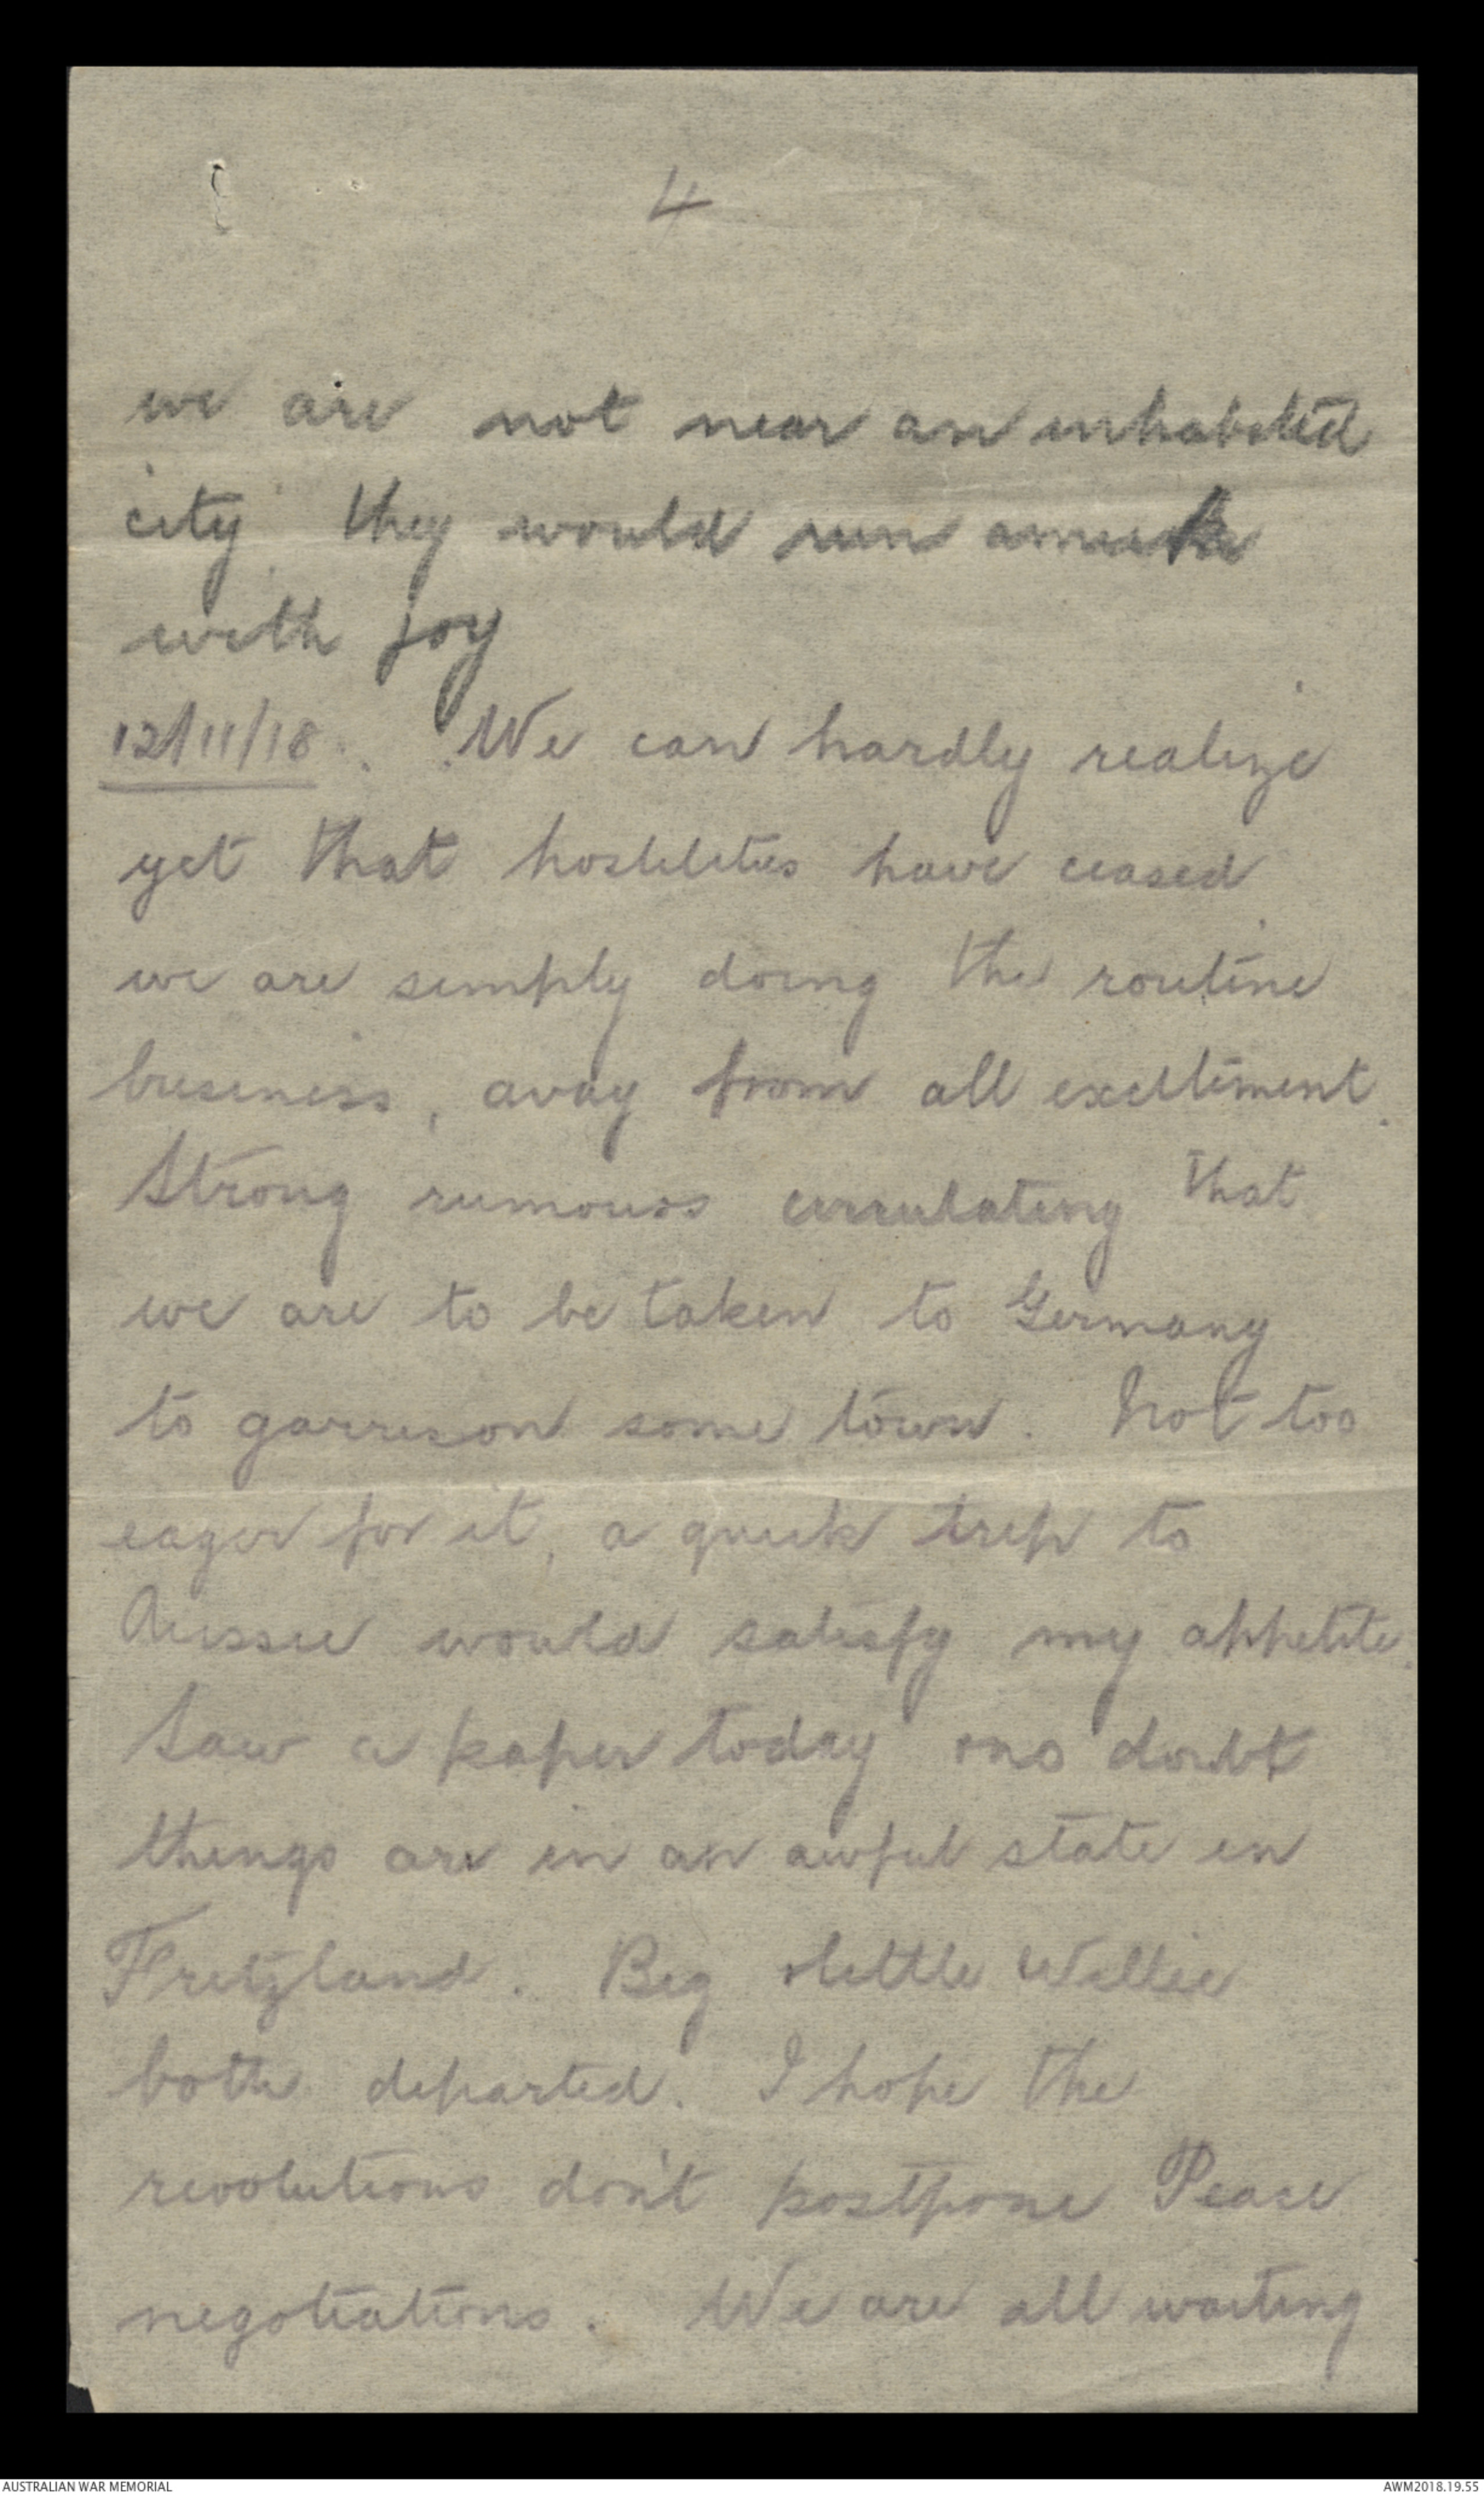 4
we are not near an inhabited
city they would run amuck
with joy
12/11/18. We can hardly realize
yet that hostilities have ceased
we are simply doing the routine
business, away from all excitement.
Strong rumours circulating that
we are to be taken to Germany
to garrison some town. Not too
eager for it, a quick trip to
Aussie would satisfy my appetite.
Saw a paper today no doubt
things are in an awful state in
Fritzland. Big & little Willie
both departed. I hope the
revolutions don't postpone Peace
negotiations. We are all waiting
AUSTRALIAN WAR MEMORIAL
AWM2018.19.55